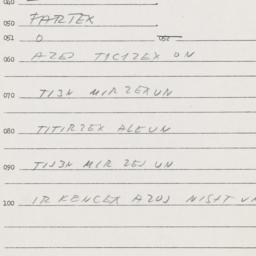 040
050 FARTEX
051 O 052
060 AZEJ TICIZEK ON
070 TIJN MIR ZEK UN
080 TITIRZEK ALE UN
090 TIJN MIR ZEJ UN
100 IR KENCEK AZOJ NISHT UN